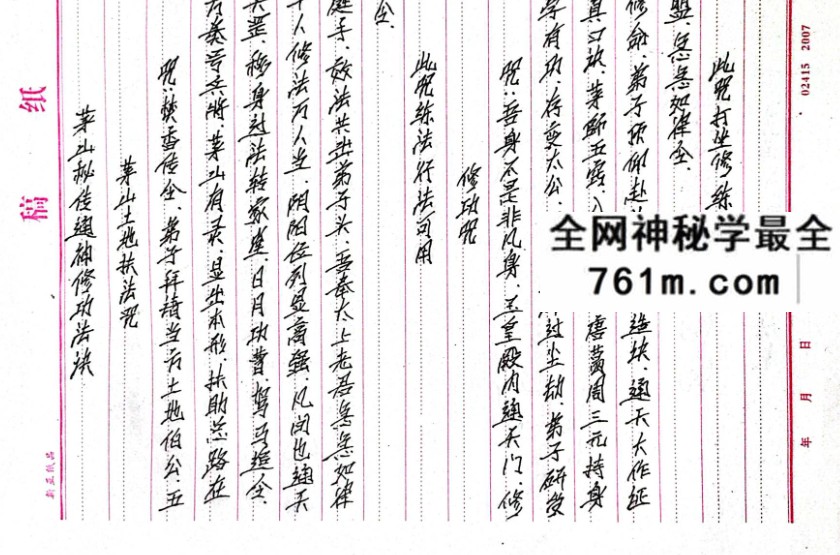 稿 纸
新亚纸品
茅山秘传通神修功法决
茅山土地扶法咒
咒:焚香传令、弟子拜请当方土地伯公、五
方姜号兵将、茅山有灵、显出本形、扶助总路在
天罡、移身过法转家堂、日月功曹、驾马追令、
千人修法万人当、阴阳位列显高强、凡间也通天
庭手、敬法共出弟子头、吾奉太上老君急急如律
令。
此咒练法行法可用
修功咒
咒:吾身不是非凡身、玉皇殿内通天门、修
学有功、存变太公、过尘劫、弟子研受
真口诀、茅师五雷、唐葛周三元持身
修命、弟子顶仰赴 通天大作证
盟、急急如律令。
此咒打坐修练
全网神秘学最全
761m.com
02415 2007
年 月 日